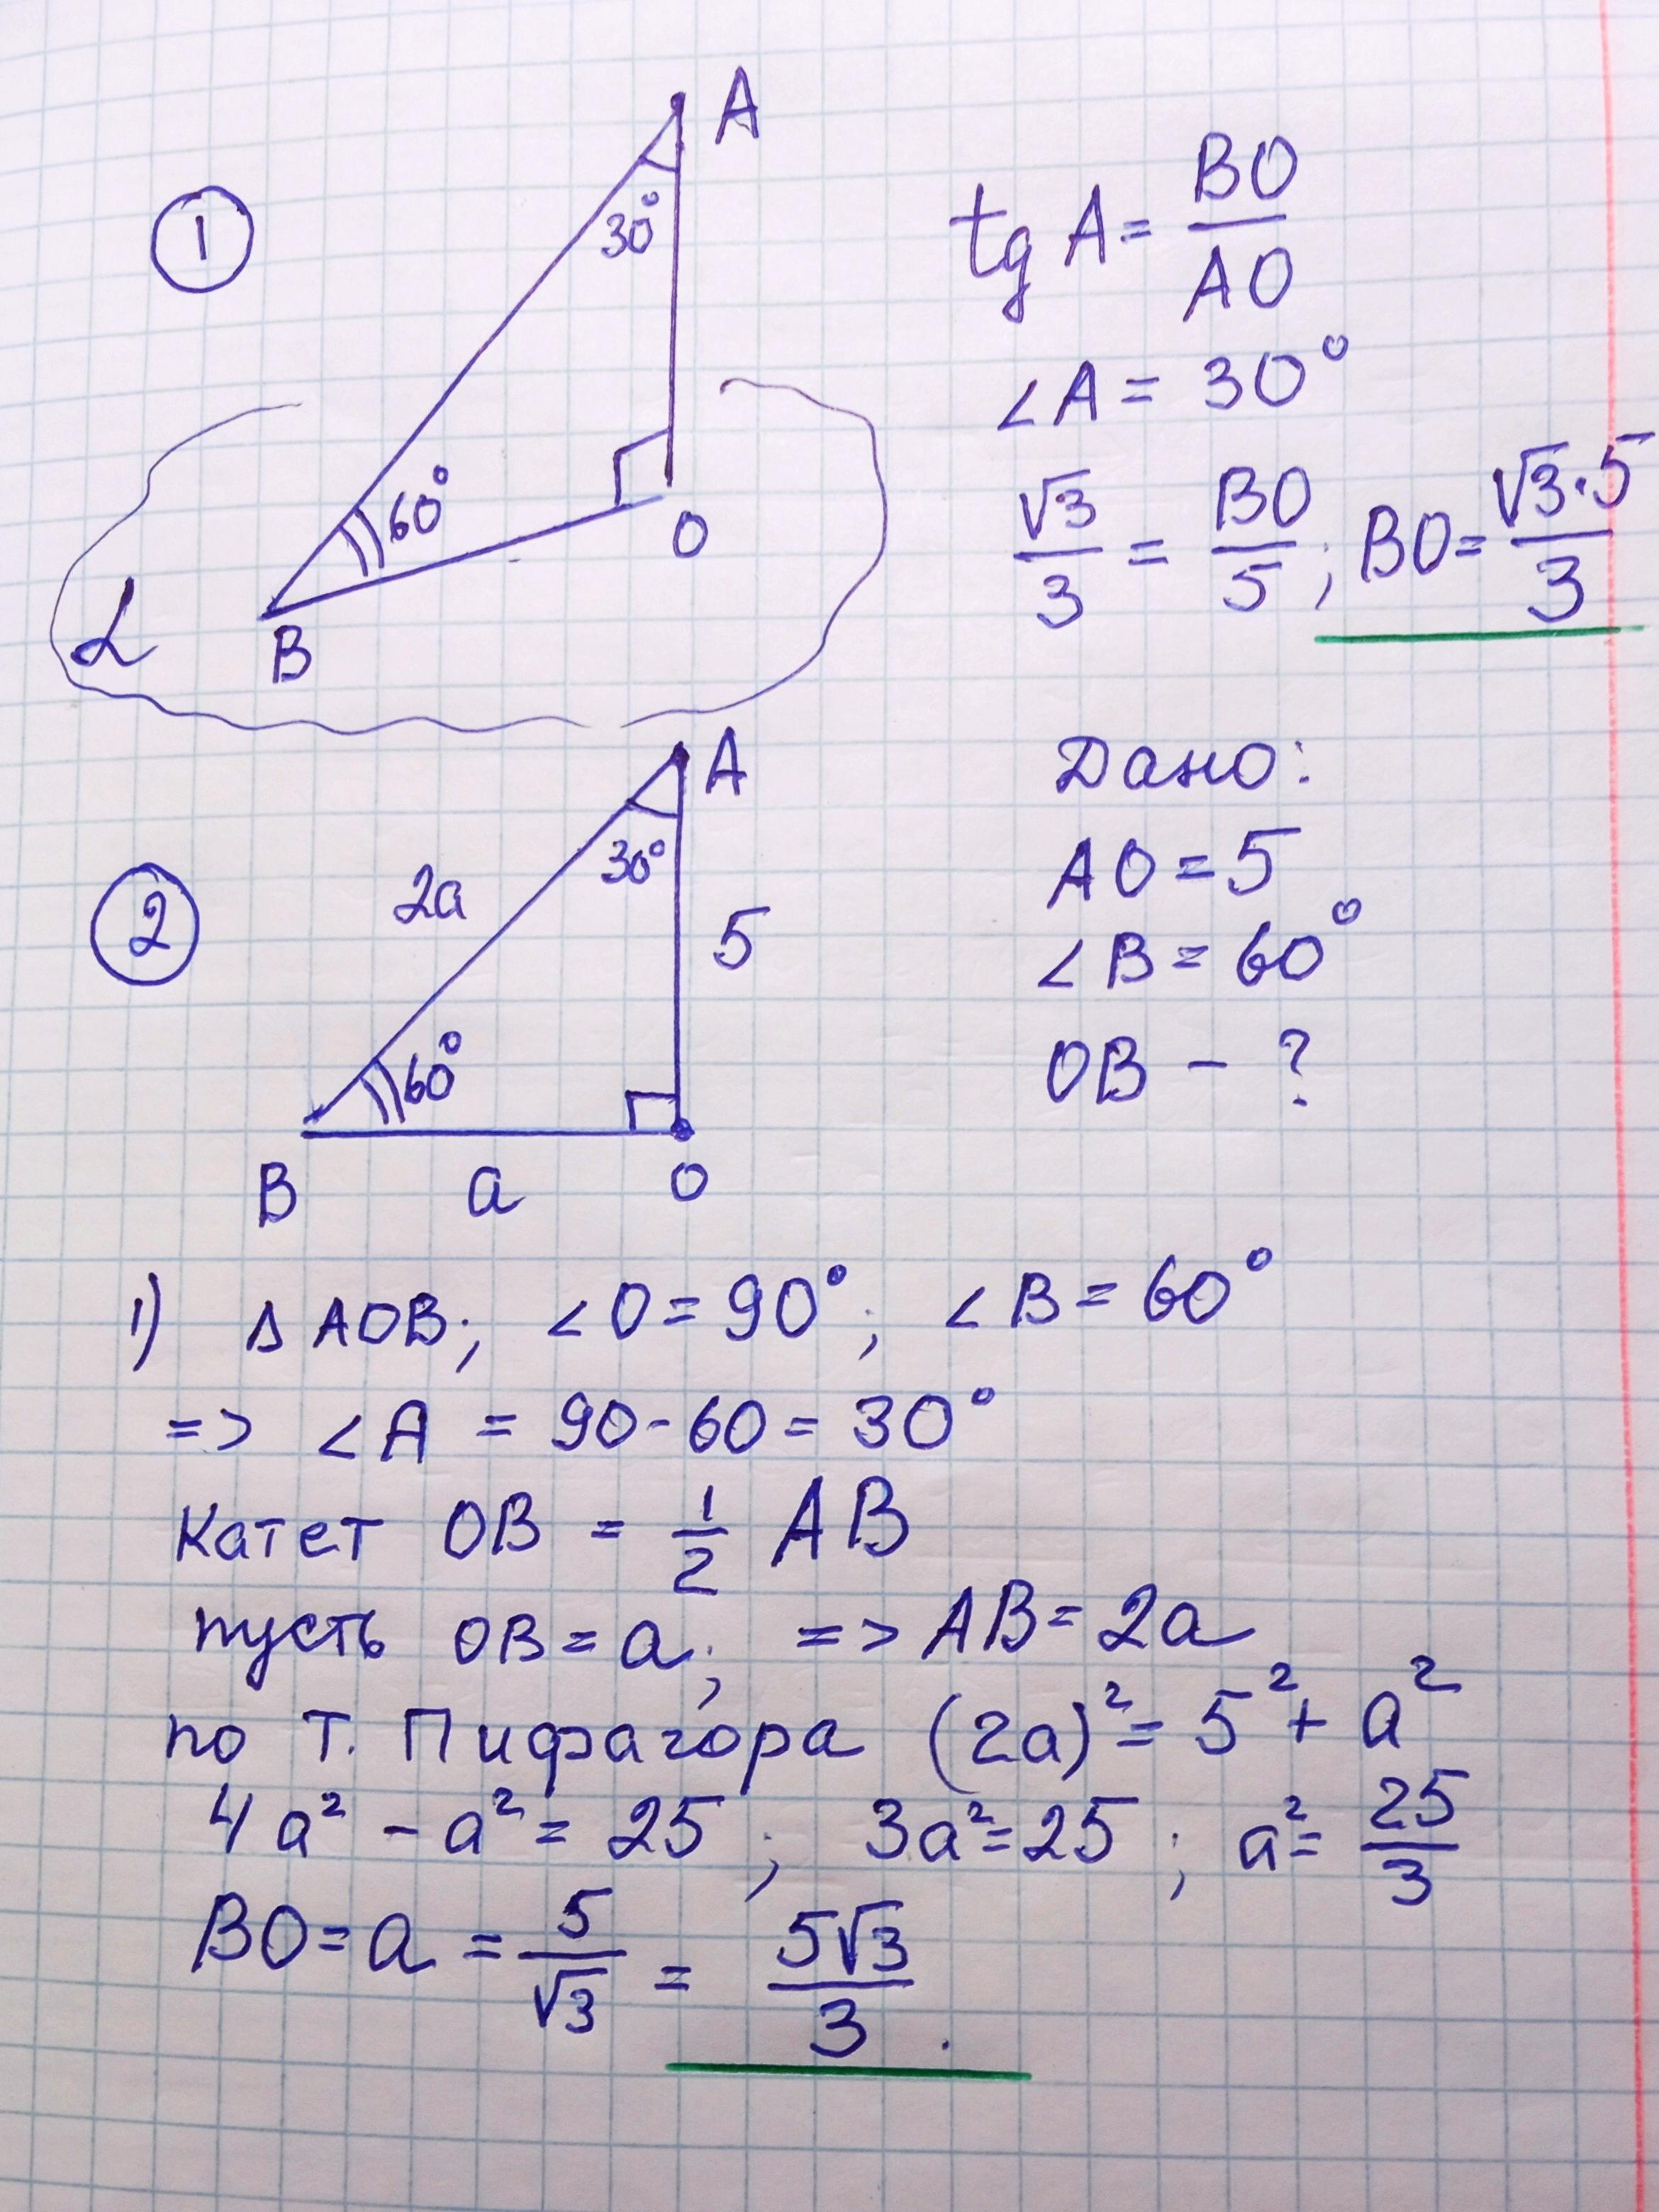 1
A
30°
60°
O
B
α
tg A = BO/AO
∠A = 30°
√3/3 = BO/5 ; BO = √3·5/3
2
A
30°
2a
5
60°
B
a
O
Дано:
AO = 5
∠B = 60°
OB – ?
1) △AOB; ∠O = 90°; ∠B = 60°
=> ∠A = 90 - 60 = 30°
Катет OB = 1/2 AB
пусть OB = a; => AB = 2a
по т. Пифагора (2a)² = 5² + a²
4a² - a² = 25 ; 3a² = 25 ; a² = 25/3
BO = a = 5/√3 = 5√3/3 .